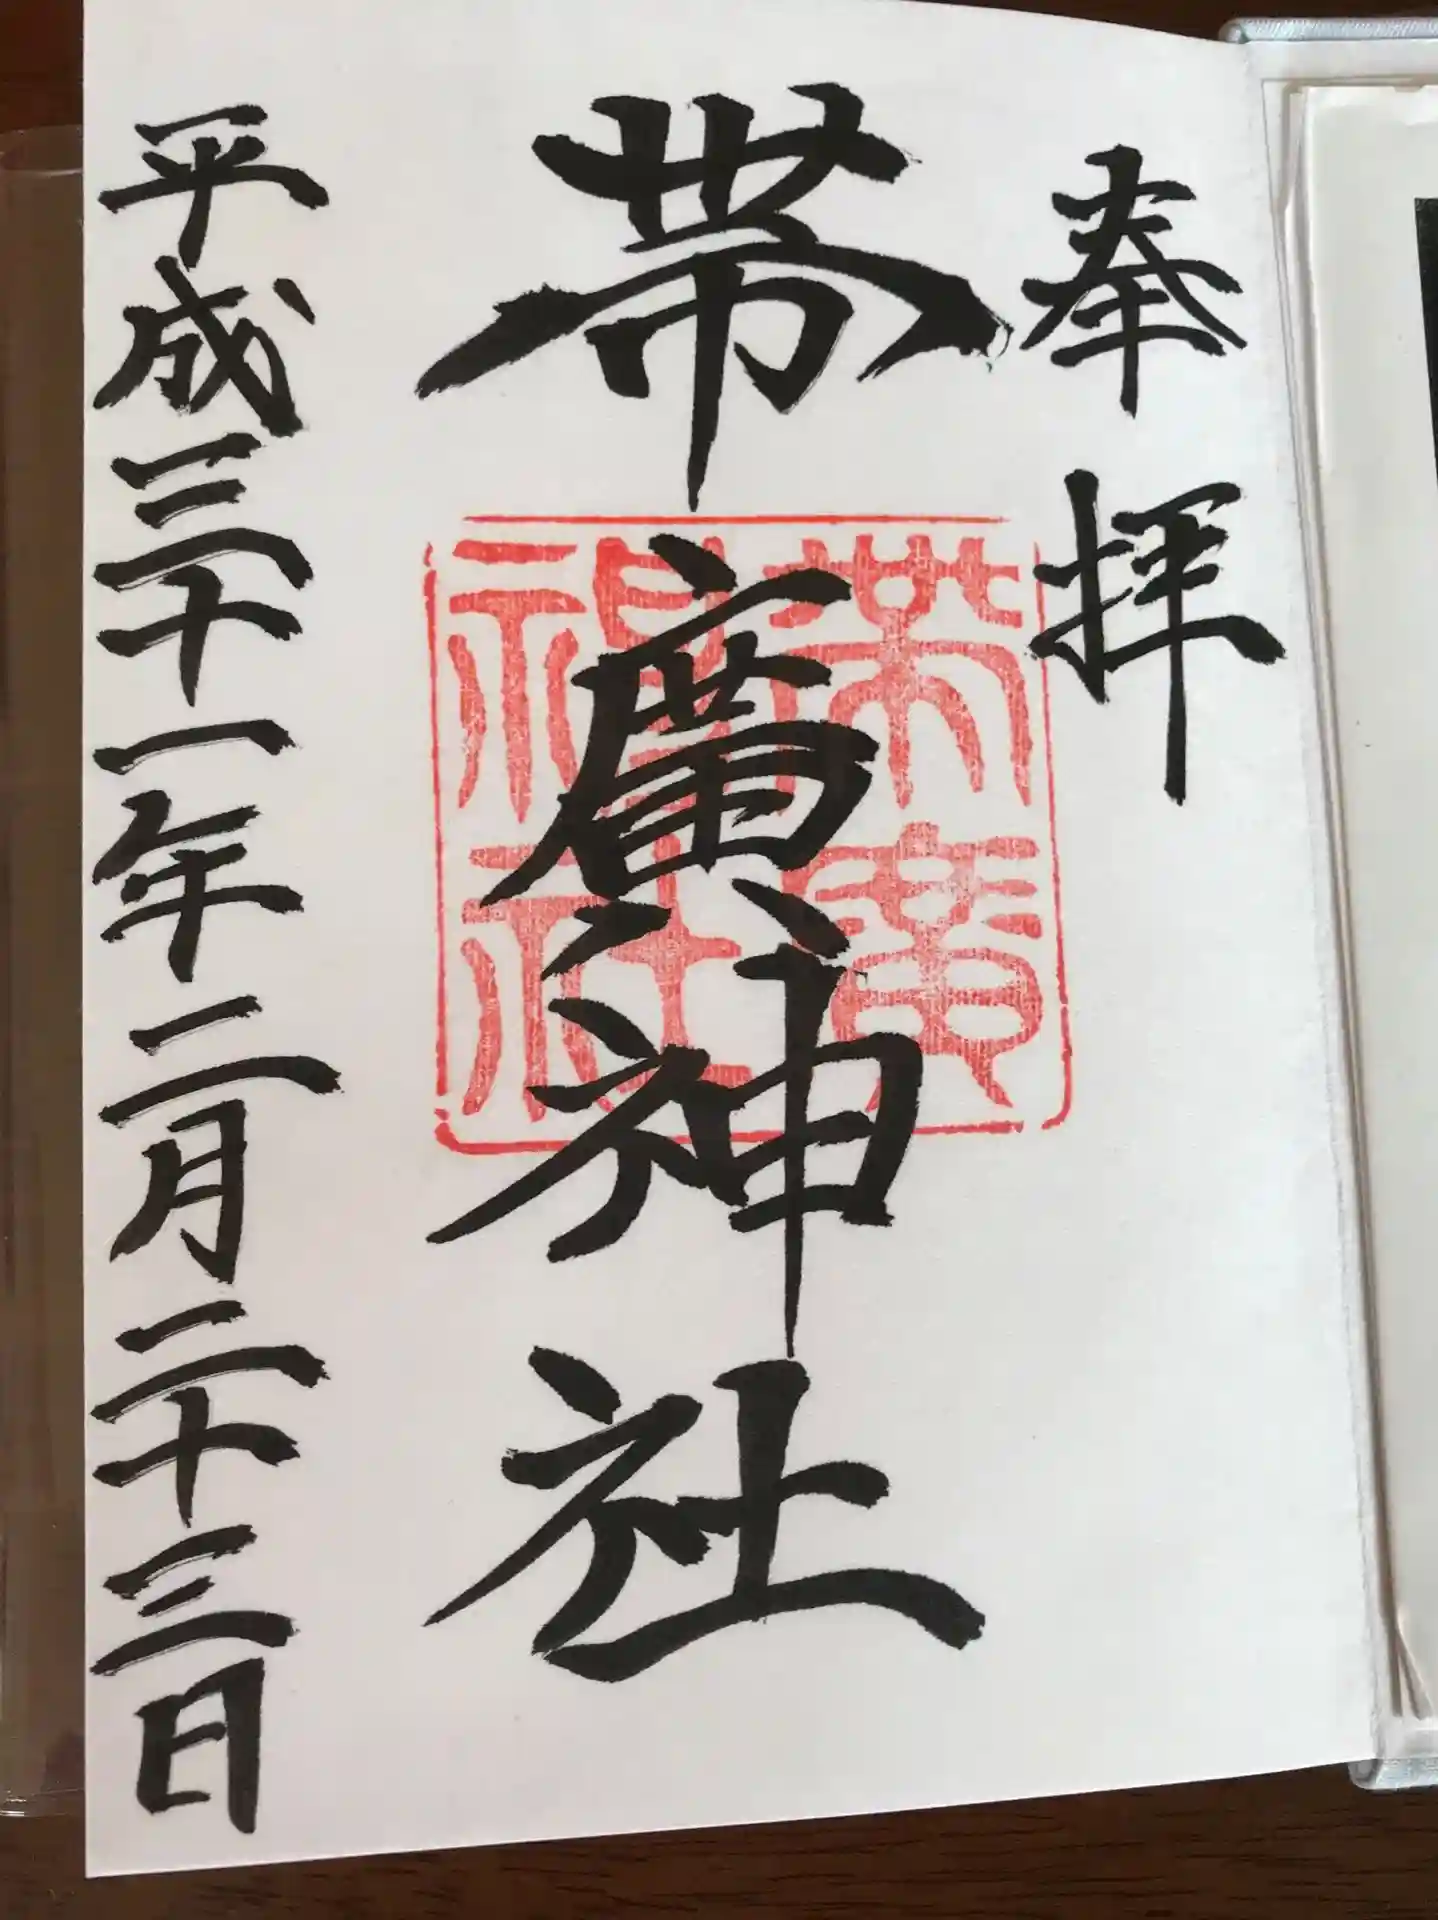 奉拝
帯廣神社
帯廣神社
平成三十一年二月二十三日